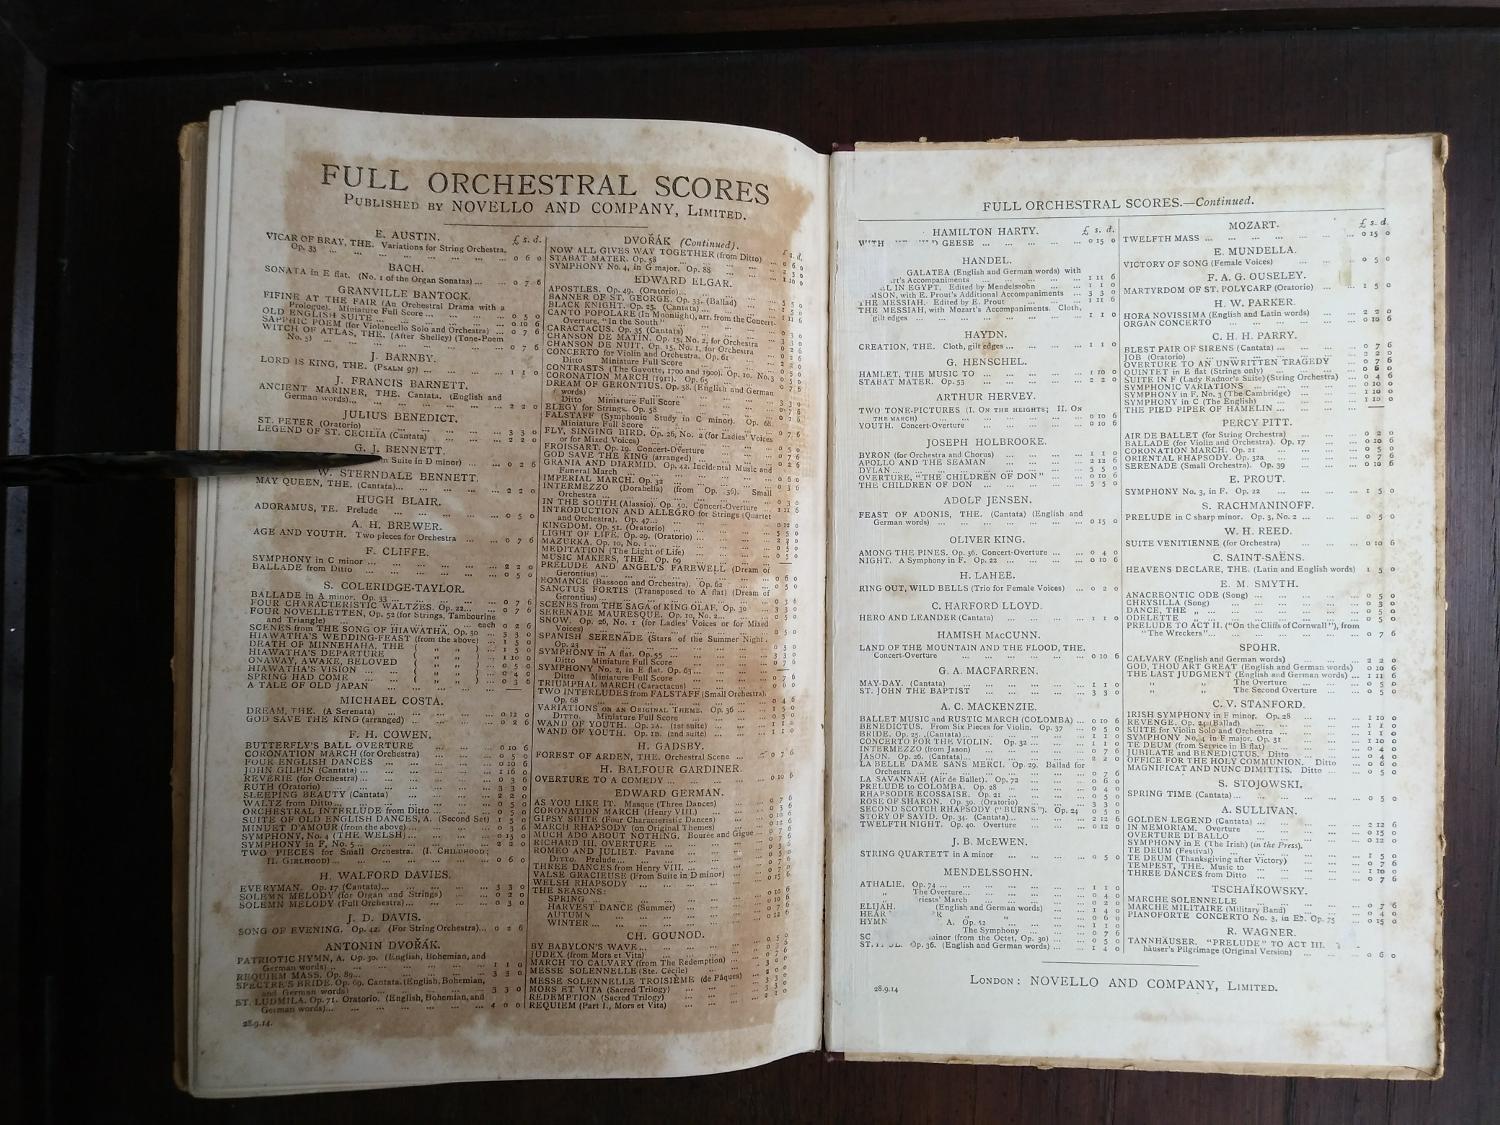 FULL ORCHESTRAL SCORES
PUBLISHED BY NOVELLO AND COMPANY, LIMITED.
E. AUSTIN.
£ s. d.
VICAR OF BRAY, THE. Variations for String Orchestra,
Op. 35 ... 0 6 0
BACH.
SONATA in E flat. (No. 1 of the Organ Sonatas) ... 0 7 6
GRANVILLE BANTOCK.
FIFINE AT THE FAIR (An Orchestral Drama with a
Prologue). Miniature Full Score ... 0 5 0
OLD ENGLISH SUITE ... 0 10 6
SAPPHIC POEM (for Violoncello Solo and Orchestra) ... 0 7 6
WITCH OF ATLAS, THE. (After Shelley) (Tone-Poem
No. 5) ... 0 7 6
J. BARNBY.
LORD IS KING, THE. (PSALM 97) ... 1 1 0
J. FRANCIS BARNETT.
ANCIENT MARINER, THE. Cantata. (English and
German words) ... 2 2 0
JULIUS BENEDICT.
ST. PETER (Oratorio) ... 3 3 0
LEGEND OF ST. CECILIA (Cantata) ... 2 2 0
G. J. BENNETT.
Suite in D minor) ... 0 2 6
W. STERNDALE BENNETT.
MAY QUEEN, THE. (Cantata) ... 2 2 0
HUGH BLAIR.
ADORAMUS, TE. Prelude ... 0 5 0
A. H. BREWER.
AGE AND YOUTH. Two pieces for Orchestra ... 0 7 6
F. CLIFFE.
SYMPHONY in C minor ... 2 2 0
BALLADE from Ditto ... 0 5 0
S. COLERIDGE-TAYLOR.
BALLADE in A minor. Op. 33 ... 0 7 6
FOUR CHARACTERISTIC WALTZES. Op. 22 ... 0 7 6
FOUR NOVELLETTEN, Op. 52 (for Strings, Tambourine
and Triangle) ... each 0 2 6
SCENES from THE SONG OF HIAWATHA. Op. 30 ... 3 3 0
HIAWATHA'S WEDDING-FEAST (from the above)
DEATH OF MINNEHAHA, THE
HIAWATHA'S DEPARTURE
ONAWAY, AWAKE, BELOVED
HIAWATHA'S VISION
SPRING HAD COME
A TALE OF OLD JAPAN
MICHAEL COSTA.
DREAM, THE. (A Serenata) ... 0 12 0
GOD SAVE THE KING (arranged) ... 0 2 6
F. H. COWEN.
BUTTERFLY'S BALL OVERTURE ... 0 10 6
CORONATION MARCH (for Orchestra) ... 0 5 0
FOUR ENGLISH DANCES ... 0 10 6
JOHN GILPIN (Cantata) ... 1 16 0
REVERIE (for Orchestra) ... 0 3 6
RUTH (Oratorio) ... 3 3 0
SLEEPING BEAUTY (Cantata) ... 2 2 0
WALTZ from Ditto ... 0 5 0
ORCHESTRAL INTERLUDE from Ditto ... 0 5 0
SUITE OF OLD ENGLISH DANCES, A. (Second Set)
MINUET D'AMOUR (from the above) ... 0 3 6
SYMPHONY, No. 4 (THE WELSH)
SYMPHONY in F, No. 5
TWO PIECES for Small Orchestra. (I. CHILDHOOD;
II. GIRLHOOD) ... 0 6 0
H. WALFORD DAVIES.
EVERYMAN. Op. 17 (Cantata) ... 3 3 0
SOLEMN MELODY (for Organ and Strings) ... 0 2 0
SOLEMN MELODY (Full Orchestra) ... 0 3 0
J. D. DAVIS.
SONG OF EVENING. Op. 42. (For String Orchestra) ... 0 2 6
ANTONIN DVOŘÁK.
PATRIOTIC HYMN, A. Op. 30. (English, Bohemian, and
German words) ... 1 1 0
REQUIEM MASS. Op. 89 ... 3 3 0
SPECTRE'S BRIDE. Op. 69. Cantata. (English, Bohemian,
and German words) ... 3 3 0
ST. LUDMILA. Op. 71. Oratorio. (English, Bohemian, and
German words) ... 4 0 0
28.9.14.
DVOŘÁK (Continued).
£ s. d.
NOW ALL GIVES WAY TOGETHER (from Ditto)
STABAT MATER. Op. 58
SYMPHONY No. 4, in G major. Op. 88
EDWARD ELGAR.
APOSTLES. Op. 49. (Oratorio)
BANNER OF ST. GEORGE. Op. 33. (Ballad)
BLACK KNIGHT. Op. 25. (Cantata)
CANTO POPOLARE (In Moonlight), arr. from the Concert
Overture, "In the South"
CARACTACUS. Op. 35 (Cantata)
CHANSON DE MATIN. Op. 15, No. 2, for Orchestra
CHANSON DE NUIT. Op. 15, No. 1, for Orchestra
CONCERTO for Violin and Orchestra. Op. 61
Ditto Miniature Full Score
CONTRASTS (The Gavotte, 1700 and 1900). Op. 10, No. 3
CORONATION MARCH (1911). Op. 65
DREAM OF GERONTIUS. Op. 38. (English and German
words)
Ditto Miniature Full Score
ELEGY for Strings. Op. 58
FALSTAFF (Symphonic Study in C minor). Op. 68.
Miniature Full Score
FLY, SINGING BIRD. Op. 26, No. 2 (for Ladies' Voices
or for Mixed Voices)
FROISSART. Op. 19. Concert-Overture
GOD SAVE THE KING (arranged)
GRANIA AND DIARMID. Op. 42. Incidental Music and
Funeral March
IMPERIAL MARCH. Op. 32
INTERMEZZO (Dorabella) (from Op. 36). Small
Orchestra
IN THE SOUTH (Alassio). Op. 50. Concert-Overture
INTRODUCTION AND ALLEGRO for Strings (Quartet
and Orchestra). Op. 47
KINGDOM. Op. 51. (Oratorio)
LIGHT OF LIFE. Op. 29. (Oratorio)
MAZURKA. Op. 10, No. 1
MEDITATION (The Light of Life)
MUSIC MAKERS, THE. Op. 69
PRELUDE AND ANGEL'S FAREWELL (Dream of
Gerontius)
ROMANCE (Bassoon and Orchestra). Op. 62
SANCTUS FORTIS (Transposed to A flat) (Dream of
Gerontius)
SCENES from THE SAGA of KING OLAF. Op. 30
SERENADE MAURESQUE. Op. 10, No. 2
SNOW. Op. 26, No. 1 (for Ladies' Voices or for Mixed
Voices)
SPANISH SERENADE (Stars of the Summer Night).
Op. 23
SYMPHONY in A flat. Op. 55
Ditto Miniature Full Score
SYMPHONY No. 2, in E flat. Op. 63
Ditto Miniature Full Score
TRIUMPHAL MARCH (Caractacus)
TWO INTERLUDES from FALSTAFF (Small Orchestra).
Op. 68
VARIATIONS ON AN ORIGINAL THEME. Op. 36
Ditto. Miniature Full Score
WAND OF YOUTH. Op. 1A. (1st suite)
WAND OF YOUTH. Op. 1B. (2nd suite)
H. GADSBY.
FOREST OF ARDEN, THE. Orchestral Scene ... 0 7 6
H. BALFOUR GARDINER.
OVERTURE TO A COMEDY ... 0 10 6
EDWARD GERMAN.
AS YOU LIKE IT. Masque (Three Dances)
CORONATION MARCH (Henry VIII.)
GIPSY SUITE (Four Characteristic Dances)
MARCH RHAPSODY (on Original Themes)
MUCH ADO ABOUT NOTHING. Bourée and Gigue
RICHARD III. OVERTURE
ROMEO AND JULIET. Pavane
Ditto. Prelude
THREE DANCES from Henry VIII.
VALSE GRACIEUSE (From Suite in D minor)
WELSH RHAPSODY
THE SEASONS:
SPRING
HARVEST DANCE (Summer)
AUTUMN
WINTER
CH. GOUNOD.
BY BABYLON'S WAVE
JUDEX (from Mors et Vita)
MARCH TO CALVARY (from The Redemption)
MESSE SOLENNELLE (Ste. Cécile)
MESSE SOLENNELLE TROISIÈME (de Pâques)
MORS ET VITA (Sacred Trilogy)
REDEMPTION (Sacred Trilogy)
REQUIEM (Part I., Mors et Vita)
FULL ORCHESTRAL SCORES.—Continued.
HAMILTON HARTY. £ s. d.
WITH GEESE ... 0 15 0
HANDEL.
GALATEA (English and German words) with
Mozart's Accompaniments ... 1 11 6
IN EGYPT. Edited by Mendelssohn ... 1 1 0
with E. Prout's Additional Accompaniments ... 3 3 0
THE MESSIAH. Edited by E. Prout ... 1 11 6
THE MESSIAH, with Mozart's Accompaniments. Cloth,
gilt edges ... 1 1 0
HAYDN.
CREATION, THE. Cloth, gilt edges ... 1 1 0
G. HENSCHEL.
HAMLET, THE MUSIC TO ... 1 10 0
STABAT MATER. Op. 53 ... 2 2 0
ARTHUR HERVEY.
TWO TONE-PICTURES (I. ON THE HEIGHTS; II. ON
THE MARCH) ... 0 10 6
YOUTH. Concert-Overture ... 0 10 6
JOSEPH HOLBROOKE.
BYRON (for Orchestra and Chorus) ... 1 1 0
APOLLO AND THE SEAMAN ... 2 12 6
DYLAN ... 5 5 0
OVERTURE, "THE CHILDREN OF DON" ... 0 10 6
THE CHILDREN OF DON ... 5 5 0
ADOLF JENSEN.
FEAST OF ADONIS, THE. (Cantata) (English and
German words) ... 0 15 0
OLIVER KING.
AMONG THE PINES. Op. 36. Concert-Overture ... 0 4 0
NIGHT. A Symphony in F. Op. 22 ... 0 10 6
H. LAHEE.
RING OUT, WILD BELLS (Trio for Female Voices) ... 0 2 0
C. HARFORD LLOYD.
HERO AND LEANDER (Cantata) ... 1 1 0
HAMISH MACCUNN.
LAND OF THE MOUNTAIN AND THE FLOOD, THE.
Concert-Overture ... 0 10 6
G. A. MACFARREN.
MAY-DAY. (Cantata) ... 1 1 0
ST. JOHN THE BAPTIST ... 3 3 0
A. C. MACKENZIE.
BALLET MUSIC and RUSTIC MARCH (COLOMBA) ... 0 10 6
BENEDICTUS. From Six Pieces for Violin. Op. 37 ... 0 5 0
BRIDE. Op. 25. (Cantata) ... 1 1 0
CONCERTO FOR THE VIOLIN. Op. 32 ... 1 1 0
INTERMEZZO (from Jason) ... 0 7 6
JASON. Op. 26. (Cantata) ... 2 2 0
LA BELLE DAME SANS MERCI. Op. 29. Ballad for
Orchestra ... 0 7 6
LA SAVANNAH (Air de Ballet). Op. 72 ... 0 6 0
PRELUDE to COLOMBA. Op. 28 ... 0 4 0
RHAPSODIE ECOSSAISE. Op. 21 ... 0 5 0
ROSE OF SHARON. Op. 30. (Oratorio) ... 3 3 0
SECOND SCOTCH RHAPSODY ("BURNS"). Op. 24 ... 0 5 0
STORY OF SAYID. Op. 34. (Cantata) ... 2 12 6
TWELFTH NIGHT. Op. 40. Overture ... 0 12 0
J. B. McEWEN.
STRING QUARTETT in A minor ... 0 5 0
MENDELSSOHN.
ATHALIE. Op. 74 ... 1 1 0
" The Overture ... 0 4 0
riests' March ... 0 2 0
ELIJAH. (English and German words) ... 1 4 0
HEAR ... 0 6 0
HYMN A. Op. 52 ... 1 1 0
The Symphony ... 0 7 6
SC minor (from the Octet, Op. 30) ... 0 5 0
ST. Op. 36. (English and German words) ... 1 4 0
28.9.14
MOZART. £ s. d.
TWELFTH MASS ... 0 15 0
E. MUNDELLA.
VICTORY OF SONG (Female Voices) ... 0 5 0
F. A. G. OUSELEY.
MARTYRDOM OF ST. POLYCARP (Oratorio) ... 1 5 0
H. W. PARKER.
HORA NOVISSIMA (English and Latin words) ... 2 2 0
ORGAN CONCERTO ... 0 10 6
C. H. H. PARRY.
BLEST PAIR OF SIRENS (Cantata) ... 0 7 6
JOB (Oratorio) ... 2 2 0
OVERTURE TO AN UNWRITTEN TRAGEDY ... 0 7 6
QUINTET in E flat (Strings only) ... 0 6 0
SUITE IN F (Lady Radnor's Suite) (String Orchestra) ... 0 4 6
SYMPHONIC VARIATIONS ... 0 10 0
SYMPHONY in F, No. 3 (The Cambridge) ... 1 10 0
SYMPHONY in C (The English) ... 1 10 0
THE PIED PIPER OF HAMELIN ... —
PERCY PITT.
AIR DE BALLET (for String Orchestra) ... 0 2 0
BALLADE (for Violin and Orchestra). Op. 17 ... 0 10 6
CORONATION MARCH. Op. 21 ... 0 5 0
ORIENTAL RHAPSODY. Op. 32a ... 0 7 6
SERENADE (Small Orchestra). Op. 39 ... 0 10 6
E. PROUT.
SYMPHONY No. 3, in F. Op. 22 ... 1 5 0
S. RACHMANINOFF.
PRELUDE in C sharp minor. Op. 3, No. 2 ... 0 5 0
W. H. REED.
SUITE VENITIENNE (for Orchestra) ... 0 10 6
C. SAINT-SAËNS.
HEAVENS DECLARE, THE. (Latin and English words) 1 5 0
E. M. SMYTH.
ANACREONTIC ODE (Song) ... 0 5 0
CHRYSILLA (Song) ... 0 3 0
DANCE, THE " ... 0 5 0
ODELETTE " ... 0 5 0
PRELUDE TO ACT II. ("On the Cliffs of Cornwall"), from
"The Wreckers" ... 0 7 6
SPOHR.
CALVARY (English and German words) ... 2 2 0
GOD, THOU ART GREAT (English and German words) 0 10 6
THE LAST JUDGMENT (English and German words) ... 1 11 6
" " The Overture ... 0 5 0
" " The Second Overture ... 0 5 0
C. V. STANFORD.
IRISH SYMPHONY in F minor. Op. 28 ... 1 10 0
REVENGE. Op. 24 (Ballad) ... 1 1 0
SUITE for Violin Solo and Orchestra ... 1 1 0
SYMPHONY No. 4 in F major. Op. 31 ... 1 10 0
TE DEUM (from Service in B flat) ... 0 4 0
JUBILATE and BENEDICTUS. Ditto ... 0 4 0
OFFICE FOR THE HOLY COMMUNION. Ditto ... 0 6 0
MAGNIFICAT AND NUNC DIMITTIS. Ditto ... 0 5 0
S. STOJOWSKI.
SPRING TIME (Cantata) ... 0 5 0
A. SULLIVAN.
GOLDEN LEGEND (Cantata) ... 2 12 6
IN MEMORIAM. Overture ... 0 15 0
OVERTURE DI BALLO ... 0 12 0
SYMPHONY in E (The Irish) (in the Press).
TE DEUM (Festival) ... 1 5 0
TE DEUM (Thanksgiving after Victory) ... 0 7 6
TEMPEST, THE. Music to ... 1 10 0
THREE DANCES from Ditto ... 0 7 6
TSCHAÏKOWSKY.
MARCHE SOLENNELLE ... 0 7 6
MARCHE MILITAIRE (Military Band) ... 0 4 0
PIANOFORTE CONCERTO No. 3, in E♭. Op. 75 ... 0 15 0
R. WAGNER.
TANNHÄUSER. "PRELUDE" TO ACT III.
häuser's Pilgrimage (Original Version) ... 0 6 0
LONDON: NOVELLO AND COMPANY, LIMITED.